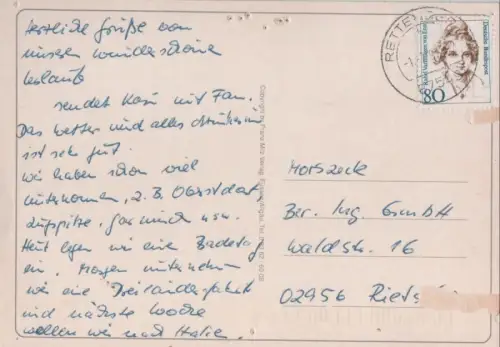 Herzliche Grüße von
unseren wunderschönen
Urlaub
sendet Kasi mit Fam.
Das Wetter und alles drumherum
ist sehr gut.
Wir haben schon viel
unternommen, z.B. Oberstdorf
Zugspitze, Garmisch usw.
Heut legen wir eine Badetag
ein. Morgen unternehmen
wir eine Dreiländerfahrt
und nächste Woche
wollen wir nach Italien.
Morszeck
Ber. Ing. GmbH
Waldstr. 16
02956 Riets
RETTENBERG
Deutsche Bundespost
80